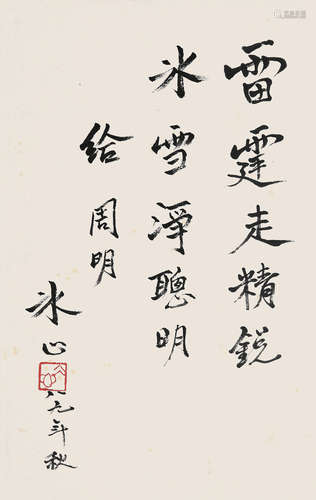 雷霆走精銳
冰雪淨聰明
給 周明
冰心
八九年秋